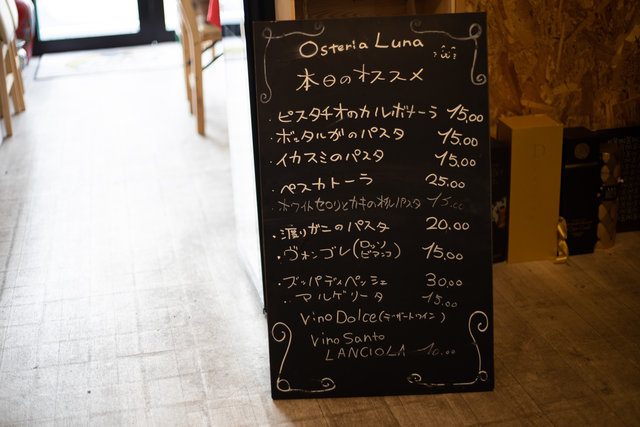 Osteria Luna
本日のオススメ
・ピスタチオのカルボナーラ 15,00
・ボッタルガのパスタ 15.00
・イカスミのパスタ 15,00
・ペスカトーラ 25.00
・ホワイトセロリとカキのオイルパスタ 15,00
・渡りガニのパスタ 20.00
・ヴォンゴレ(ロッソ ビアンコ) 15,00
・ズッパディペッシェ 30.00
・マルゲリータ 15,00
Vino Dolce(デザートワイン)
Vino Santo
LANCIOLA 10.00